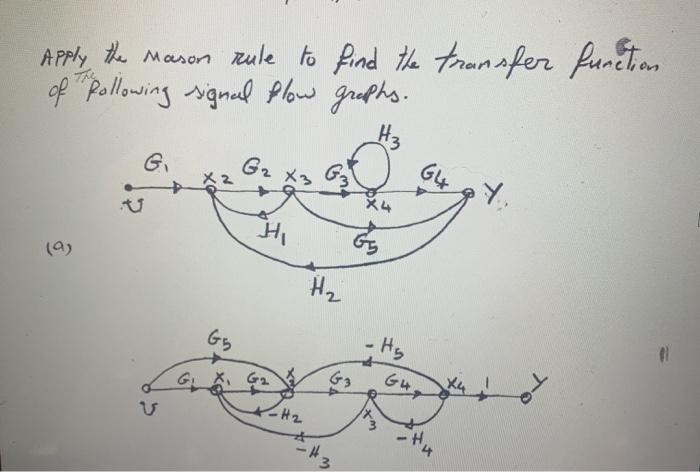 Apply the Mason rule to find the transfer function
of The following signal flow graphs.
H3
G1 X2 G2 X3 G3 G4 Y.
U X4
H1 G5
(a)
H2
G5 -H5
G1 X1 G2 X2 G3 G4 X4 1 Y
U -H2 X3 -H4
-H3